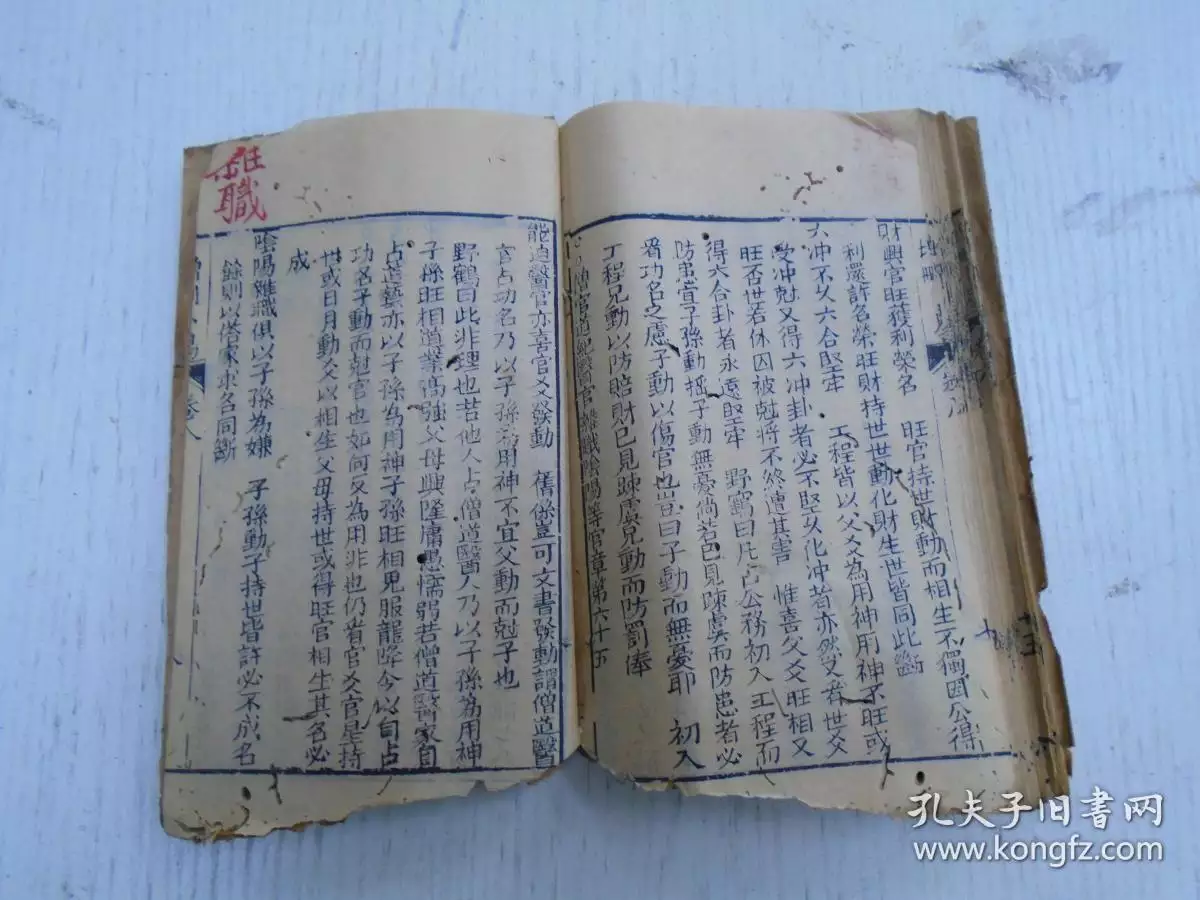 財興官旺獲利榮名　旺官持世財動而相生不獨因公得
利還許名榮旺財持世世動化財生世皆同此斷
六冲不久六合堅牢　工程皆以父爻為用神用神不旺或
受冲尅又得六冲卦者必不堅久化冲者亦然又者世父
旺否世若休囚被尅將不然遭其害　惟喜父爻旺相又
得六合卦者永遠堅牢　野鶴曰凡占公務初入工程而
防患宜子孫動摇子動無憂倘若已見踈虞而防患者必
看功名之慮子動以傷官也豈曰子動而無憂耶　初入
工程兄動以防賠財已見踈虞兄動而防罰俸
僧官道紀醫官雜職陰陽等官章第六十五
能迪醫官亦喜官爻發動　舊係豈可文書發動謂僧道醫
官占功名乃以子孫為用神不宜父動而尅子也
野鶴曰此非理也若他人占僧道醫人乃以子孫為用神
子孫旺相道業高強父母興隆庸愚懦弱若僧道醫家自
占道藝亦以子孫為用神子孫旺相鬼服龍降今以自占
功名子動而尅官也如何反為用非也仍看官爻官星持
世或日月動父以相生父母持世或得旺官相生其名必
成
陰陽雜職俱以子孫為嫌　子孫動子持世皆許必不成名
餘則以俗家求名同斷
卷八
雜職
孔夫子旧书网
www.kongfz.com